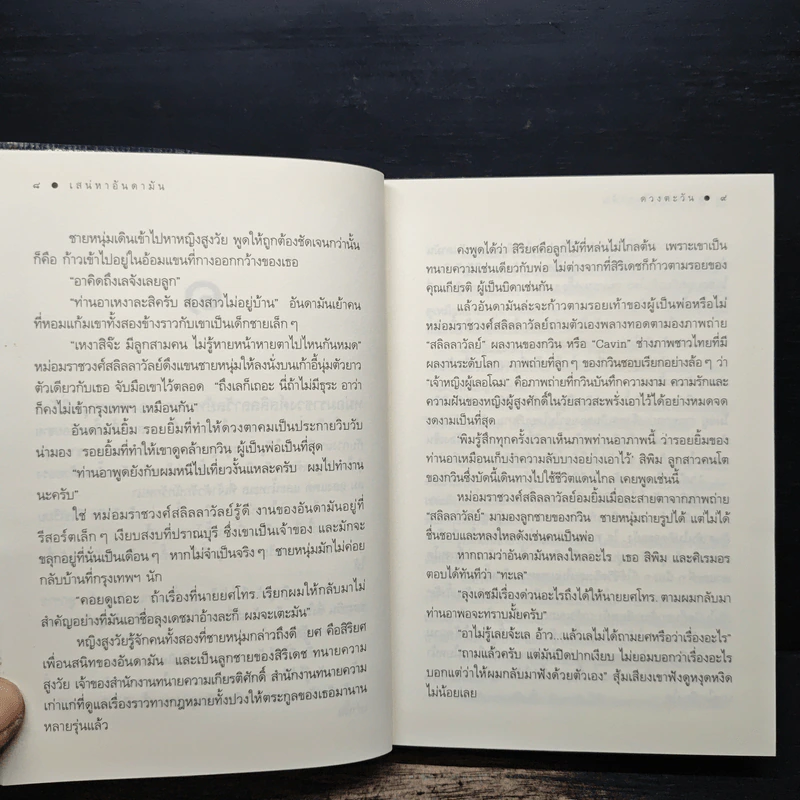 ๘ ● เสน่หาอันดามัน
ชายหนุ่มเดินเข้าไปหาหญิงสูงวัย พูดให้ถูกต้องชัดเจนกว่านั้น
ก็คือ ก้าวเข้าไปอยู่ในอ้อมแขนที่กางออกกว้างของเธอ
“อาคิดถึงเลจังเลยลูก”
“ท่านอาเหงาละสิครับ สองสาวไม่อยู่บ้าน” อันดามันเย้าคน
ที่หอมแก้มเขาทั้งสองข้างราวกับเขาเป็นเด็กชายเล็กๆ
“เหงาสิจ๊ะ มีลูกสามคน ไม่รู้หายหน้าหายตาไปไหนกันหมด”
หม่อมราชวงศ์สลิลลาวัลย์ดึงแขนชายหนุ่มให้ลงนั่งบนเก้าอี้นุ่มตัวยาว
ตัวเดียวกับเธอ จับมือเขาไว้ตลอด “ถึงเลก็เถอะ นี่ถ้าไม่มีธุระ อาว่า
ก็คงไม่เข้ากรุงเทพฯ เหมือนกัน”
อันดามันยิ้ม รอยยิ้มที่ทำให้ดวงตาคมเป็นประกายวิบวับ
น่ามอง รอยยิ้มที่ทำให้เขาดูคล้ายกวิน ผู้เป็นพ่อเป็นที่สุด
“ท่านอาพูดยังกับผมหนีไปเที่ยวงั้นแหละครับ ผมไปทำงาน
นะครับ”
ใช่ หม่อมราชวงศ์สลิลลาวัลย์รู้ดี งานของอันดามันอยู่ที่
รีสอร์ตเล็กๆ เงียบสงบที่ปราณบุรี ซึ่งเขาเป็นเจ้าของ และมักจะ
ขลุกอยู่ที่นั่นเป็นเดือนๆ หากไม่จำเป็นจริงๆ ชายหนุ่มมักไม่ค่อย
กลับบ้านที่กรุงเทพฯ นัก
“คอยดูเถอะ ถ้าเรื่องที่นายยศโทร. เรียกผมให้กลับมาไม่
สำคัญอย่างที่มันเอาชื่อลุงเดชมาอ้างละก็ ผมจะเตะมัน”
หญิงสูงวัยรู้จักคนทั้งสองที่ชายหนุ่มกล่าวถึงดี ยศ คือสิริยศ
เพื่อนสนิทของอันดามัน และเป็นลูกชายของสิริเดช ทนายความ
สูงวัย เจ้าของสำนักงานทนายความเกียรติศักดิ์ สำนักงานทนายความ
เก่าแก่ที่ดูแลเรื่องราวทางกฎหมายทั้งปวงให้ตระกูลของเธอมานาน
หลายรุ่นแล้ว
ดวงตะวัน ● ๙
คงพูดได้ว่า สิริยศคือลูกไม้ที่หล่นไม่ไกลต้น เพราะเขาเป็น
ทนายความเช่นเดียวกับพ่อ ไม่ต่างจากที่สิริเดชก็ก้าวตามรอยของ
คุณเกียรติ ผู้เป็นบิดาเช่นกัน
แล้วอันดามันล่ะจะก้าวตามรอยเท้าของผู้เป็นพ่อหรือไม่
หม่อมราชวงศ์สลิลลาวัลย์ถามตัวเองพลางทอดตามองภาพถ่าย
“สลิลลาวัลย์” ผลงานของกวิน หรือ “Cavin” ช่างภาพชาวไทยที่มี
ผลงานระดับโลก ภาพถ่ายที่ลูกๆ ของกวินชอบเรียกอย่างล้อๆ ว่า
‘เจ้าหญิงผู้เลอโฉม’ คือภาพถ่ายที่กวินบันทึกความงาม ความรักและ
ความฝันของหญิงผู้สูงศักดิ์ในวัยสาวสะพรั่งเอาไว้ได้อย่างหมดจด
งดงามเป็นที่สุด
‘พิมรู้สึกทุกครั้งเวลาเห็นภาพท่านอาภาพนี้ ว่ารอยยิ้มของ
ท่านอาเหมือนเก็บงำความลับบางอย่างเอาไว้’ สิพิม ลูกสาวคนโต
ของกวินซึ่งบัดนี้เดินทางไปใช้ชีวิตแดนไกล เคยพูดเช่นนี้
หม่อมราชวงศ์สลิลลาวัลย์อมยิ้มเมื่อละสายตาจากภาพถ่าย
“สลิลลาวัลย์” มามองลูกชายของกวิน ชายหนุ่มถ่ายรูปได้ แต่ไม่ได้
ชื่นชอบและหลงใหลดังเช่นคนเป็นพ่อ
หากถามว่าอันดามันหลงใหลอะไร เธอ สิพิม และศิเรมอร
ตอบได้ทันทีว่า ‘ทะเล’
“ลุงเดชมีเรื่องด่วนอะไรถึงได้ให้นายยศโทร. ตามผมกลับมา
ท่านอาพอจะทราบมั้ยครับ”
“อาไม่รู้เลยจ้ะเล อ้าว...แล้วเลไม่ได้ถามยศหรือว่าเรื่องอะไร”
“ถามแล้วครับ แต่มันปิดปากเงียบ ไม่ยอมบอกว่าเรื่องอะไร
บอกแต่ว่าให้ผมกลับมาฟังด้วยตัวเอง” สุ้มเสียงเขาฟังดูหงุดหงิด
ไม่น้อยเลย